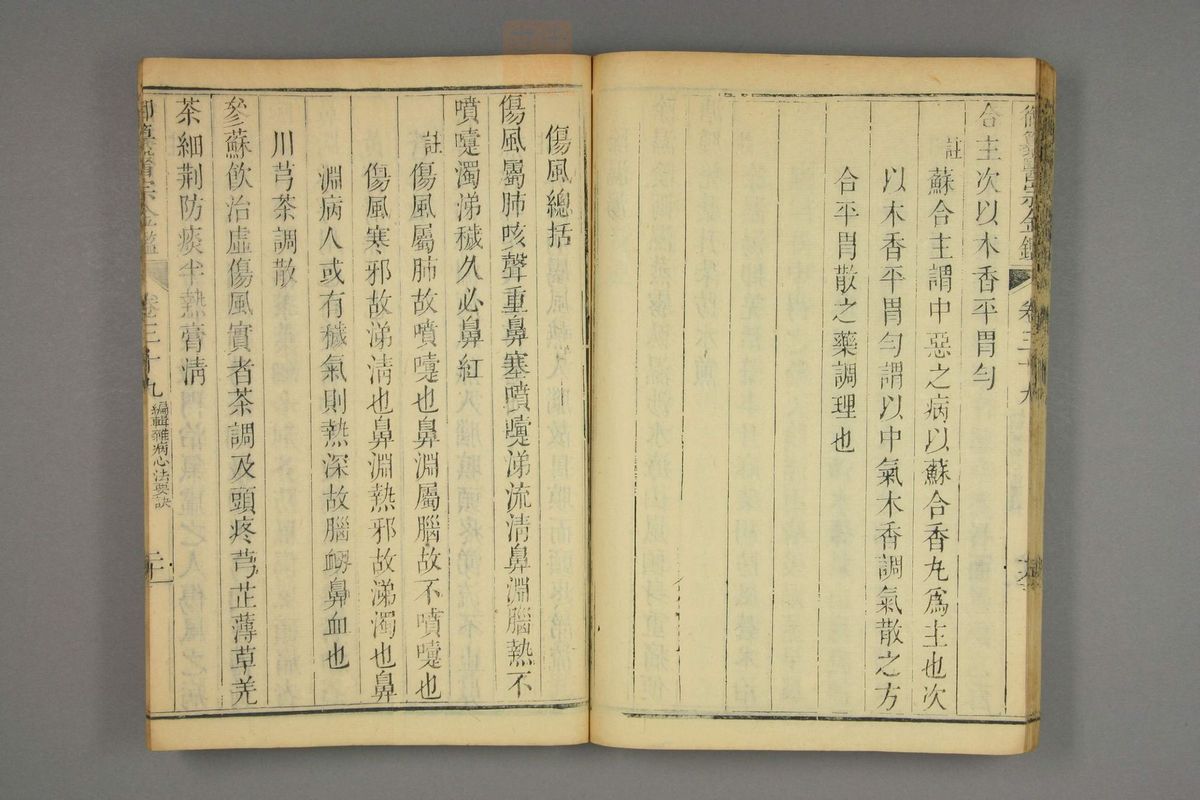 合主次以木香平胃勻
註
蘇合主謂中惡之病以蘇合香丸爲主也次
以木香平胃勻謂以中氣木香調氣散之方
合平胃散之藥調理也
傷風總括
傷風屬肺咳聲重鼻塞噴嚏涕流清鼻淵腦熱不
噴嚏濁涕穢久必鼻紅
註
傷風屬肺故噴嚏也鼻淵屬腦故不噴嚏也
傷風寒邪故涕清也鼻淵熱邪故涕濁也鼻
淵病人或有穢氣則熱深故腦衂鼻血也
川芎茶調散
參蘇飲治虛傷風實者茶調及頭疼芎芷薄草羌
茶細荆防痰半熱膏清
御纂醫宗金鑑
卷三十九
編輯雜病心法要訣